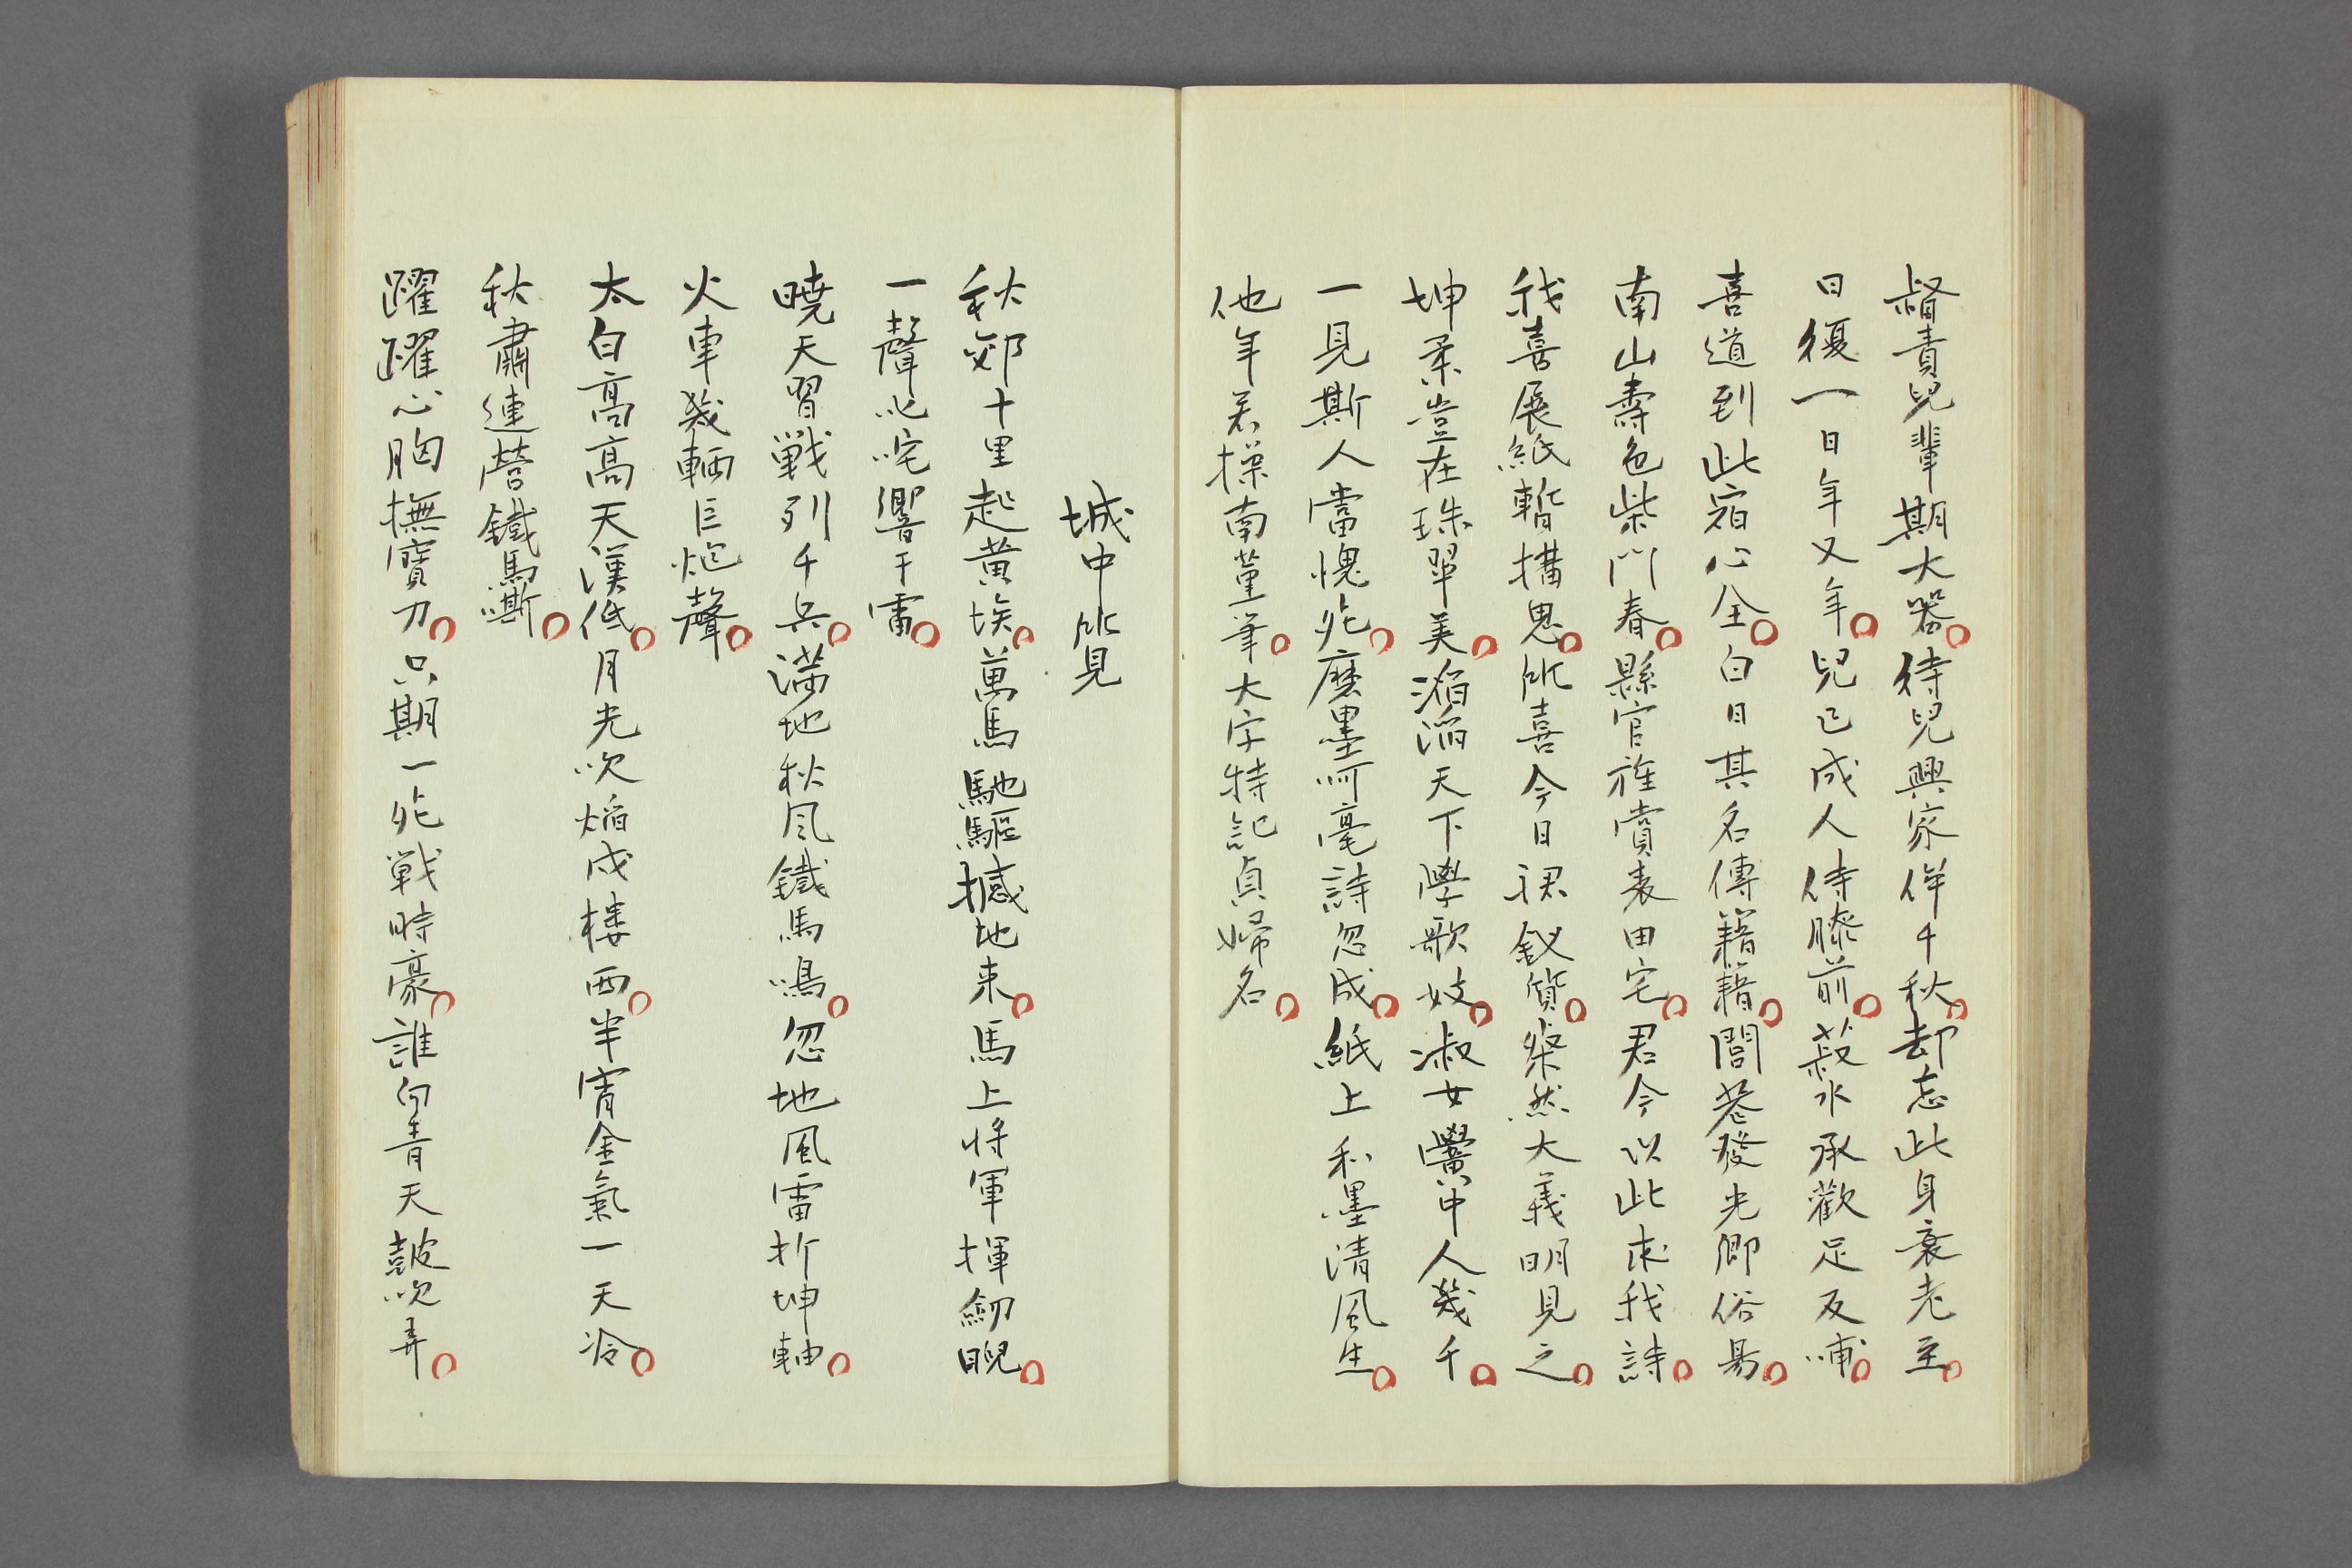 督責兒輩期大器待兒興家伴千秋却忘此身衰老至
日復一日年又年兒已成人侍膝前菽水承歡足反哺
喜道到此宿心全白日其名傳籍籍閭巷發光鄉俗易
南山壽色柴門春縣官旌賞表田宅君今以此求我詩
我喜展紙暫搆思所喜今日裙釵質粲然大義明見之
坤柔豈在珠翠美滔滔天下學歌妓淑女黌中人幾千
一見斯人當愧死磨墨呵毫詩忽成紙上和墨清風生
他年若操南董筆大字特記貞婦名
城中所見
秋郊十里起黄埃萬馬馳驅撼地来馬上将軍揮劔睨
一聲叱咤響干雷
曉天習戰列千兵満地秋風鐵馬鳴忽地風雷折坤軸
火車幾輌巨炮聲
太白高高天漢低月光吹焔戍楼西半宵金氣一天冷
秋肅連營鐵馬嘶
躍躍心胸撫寶刀只期一死戦時豪誰向青天皷吹弄